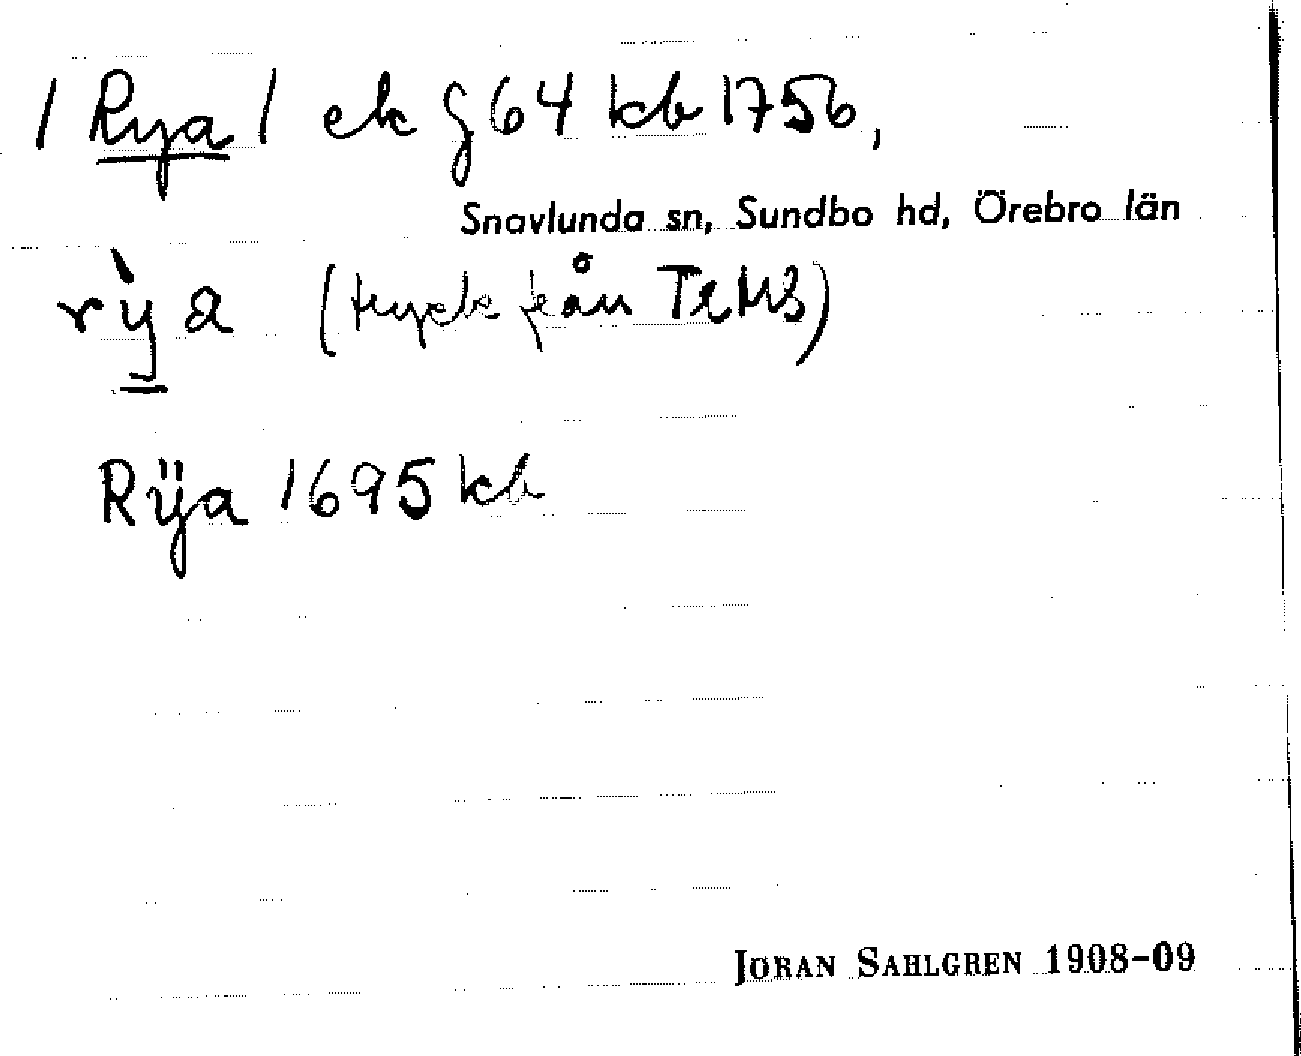 / Rya / ek § 64 kb 1756,
Snavlunda sn, Sundbo hd, Örebro län
rỳa (tryck från TRMS)
Rÿa 1695 kb
JÖRAN SAHLGREN 1908-09